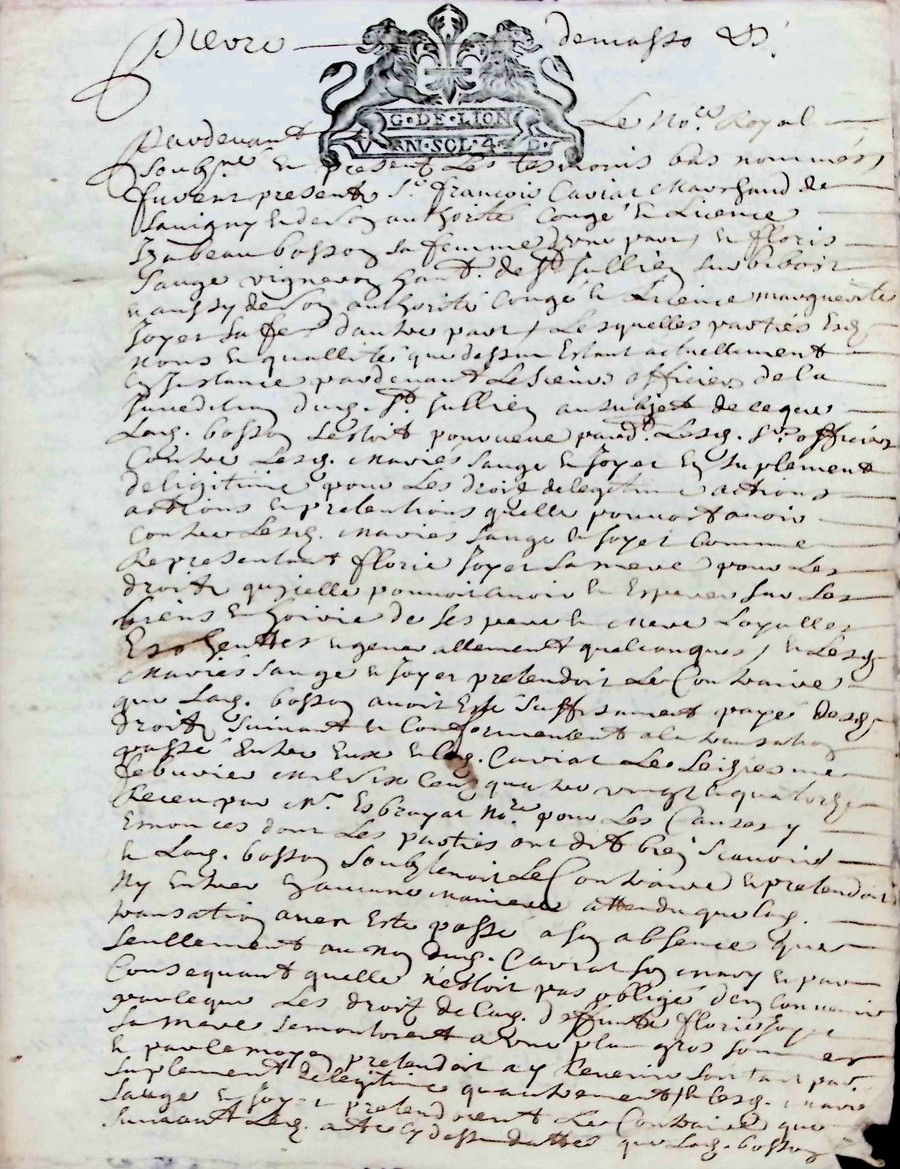 Pierre demasso &
G · DE · LION
UN · SOL · 4 · D ·
Pardevant Le No.re Royal
Soubne. Et present Les tesmoins bas nommés
furent present Sr. françois Caviat Marchand de
Savigny Et de Son authorité Congé Et Licence
Izabeau bosson Sa femme d'une part, Et floris
Sauge vigneron habt. de St Jullien Sur bibost
Et aussy de Son authorité Congé Et Licence marguerite
Joyet Sa fe. d'autre part, Lesquelles parties
nous En quallité que dessus Estant actuellement
En Instance pardevant Les Officiers de La
Juridition dud. St Jullien au Subject de ce que
Lad. bosson Sestoit pourveue pard. Lesd. Srs officiers
Contre Lesd. Mariés Sauge Et Joyet En Suplement
de legitime pour Les droit de legitime actions
actions Et pretentions quelle pouvoit avoir
Contre Lesd. Mariés Sauge Et Joyet Comme
Representant florie Joyet Sa mere pour Les
droits quielle pouvoit avoir Et Esperer Sur Les
biens Et hoirie de Ses pere Et Mere Loyalles
Eschuttes Et generallement quelconques, Et Lesd.
Mariés Sauge Et Joyet pretendoit Le Contraire
que Lad. bosson avoit Esté Suffisament payé desd.
droits Suivant Et Conformement a la transation
passé Entre Eux Et led. Caviat Le Seisiesme
febvrier Mil Six Cent quatre vingt Et quatorze
Receu par Me. Esbrayat Nore. pour Les Causes y
Enoncés dont Les parties ont dit bien Scavoir
Et Lad. bosson Soubstenoit Le Contraire Et pretendoit
Ny Entrer En aucune Maniere attendu que lad.
transation avoit Esté passé a Son absence que
Seullement au Nom dud. Caviat Son Mary Et par
Consequant quelle n'estoit pas obligé d'en Convenir
parceque Les droit de Lad. deffunte florie Joyet
Sa Mere Se montoient a Une plus gros Sommes
Et par le moyen pretendoit a y Revenir Son tant par
Suplement de legitime qu'autrement Et lesd. Mariés
Sauge Et Joyet pretendoient Le Contraire que
Suivant Led. acte Cy dessus dattés que Lad. bosson